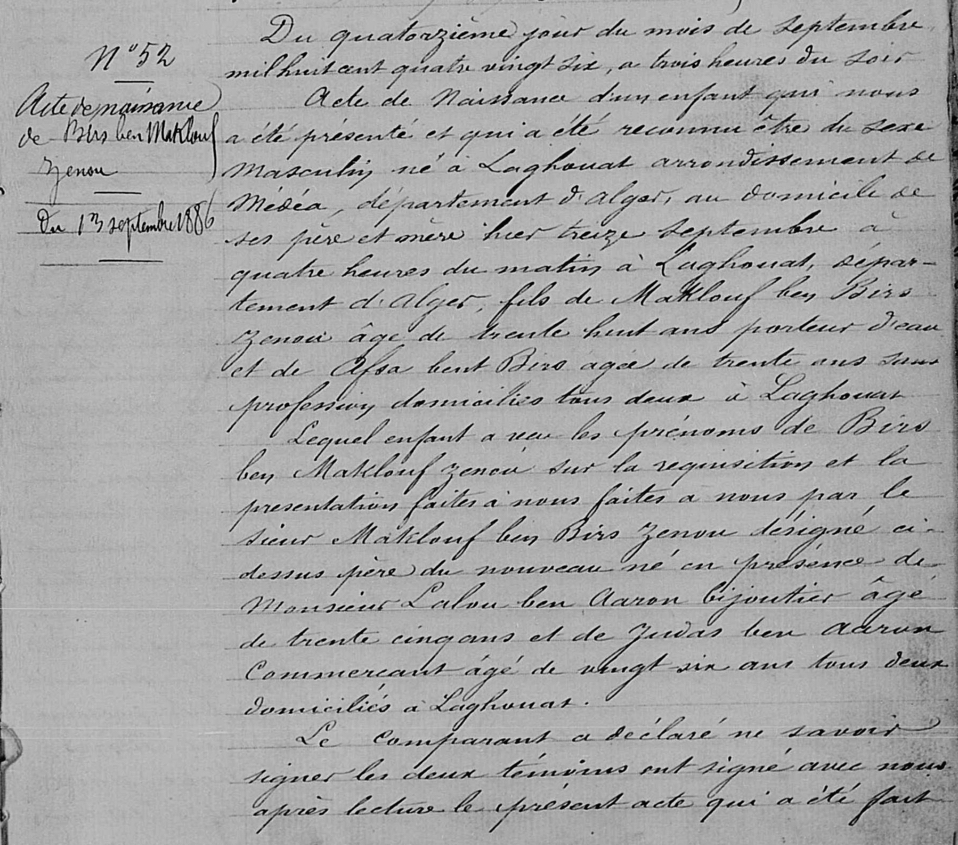 N° 52
Acte de naissance
de Birs ben Maklouf
Zenou
Du 13 septembre 1886
Du quatorzième jour du mois de septembre
mil huit cent quatre vingt six, a trois heures du soir
Acte de Naissance d'un enfant qui nous
a été présenté et qui a été reconnu être du sexe
Masculin né à Laghouat arrondissement de
Médéa, département d'Alger, au domicile de
ses père et mère hier treize septembre à
quatre heures du matin à Laghouat, dépar-
tement d'Alger, fils de Maklouf ben Birs
Zenou âgé de trente huit ans porteur d'eau
et de Afsa bent Birs agée de trente ans sans
profession domiciliés tous deux à Laghouat
Lequel enfant a reçu les prénoms de Birs
ben Maklouf Zenou sur la requisition et la
presentation faites à nous faites a nous par le
sieur Maklouf ben Birs Zenou désigné ci-
dessus père du nouveau né en présence de
Monsieur Lalou ben Aaron bijoutier âgé
de trente cinq ans et de Judas ben Aaron
Commerçant âgé de vingt six ans tous deux
domiciliés à Laghouat.
Le Comparant a déclaré ne savoir
signer les deux témoins ont signé avec nous
après lecture le présent acte qui a été fait